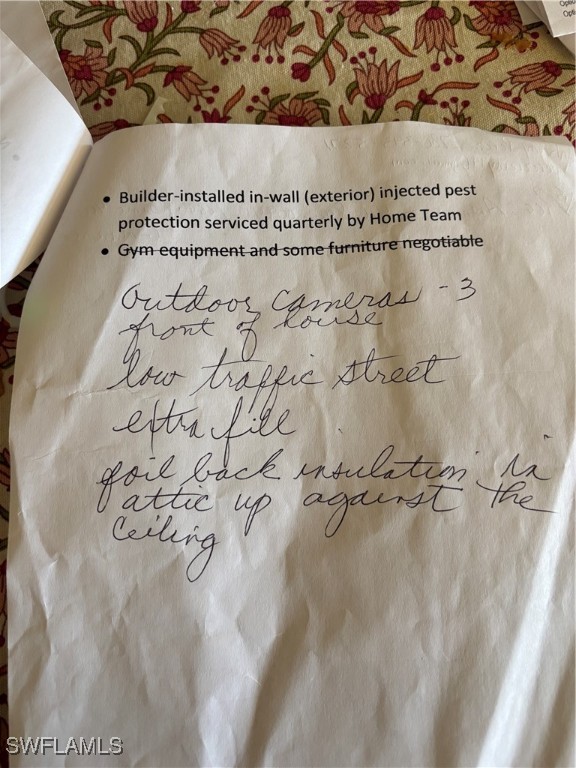 • Builder-installed in-wall (exterior) injected pest
protection serviced quarterly by Home Team
• Gym equipment and some furniture negotiable
Outdoor Cameras - 3
front of house
low traffic street
extra fill
foil back insulation in
attic up against the
ceiling
SWFLAMLS